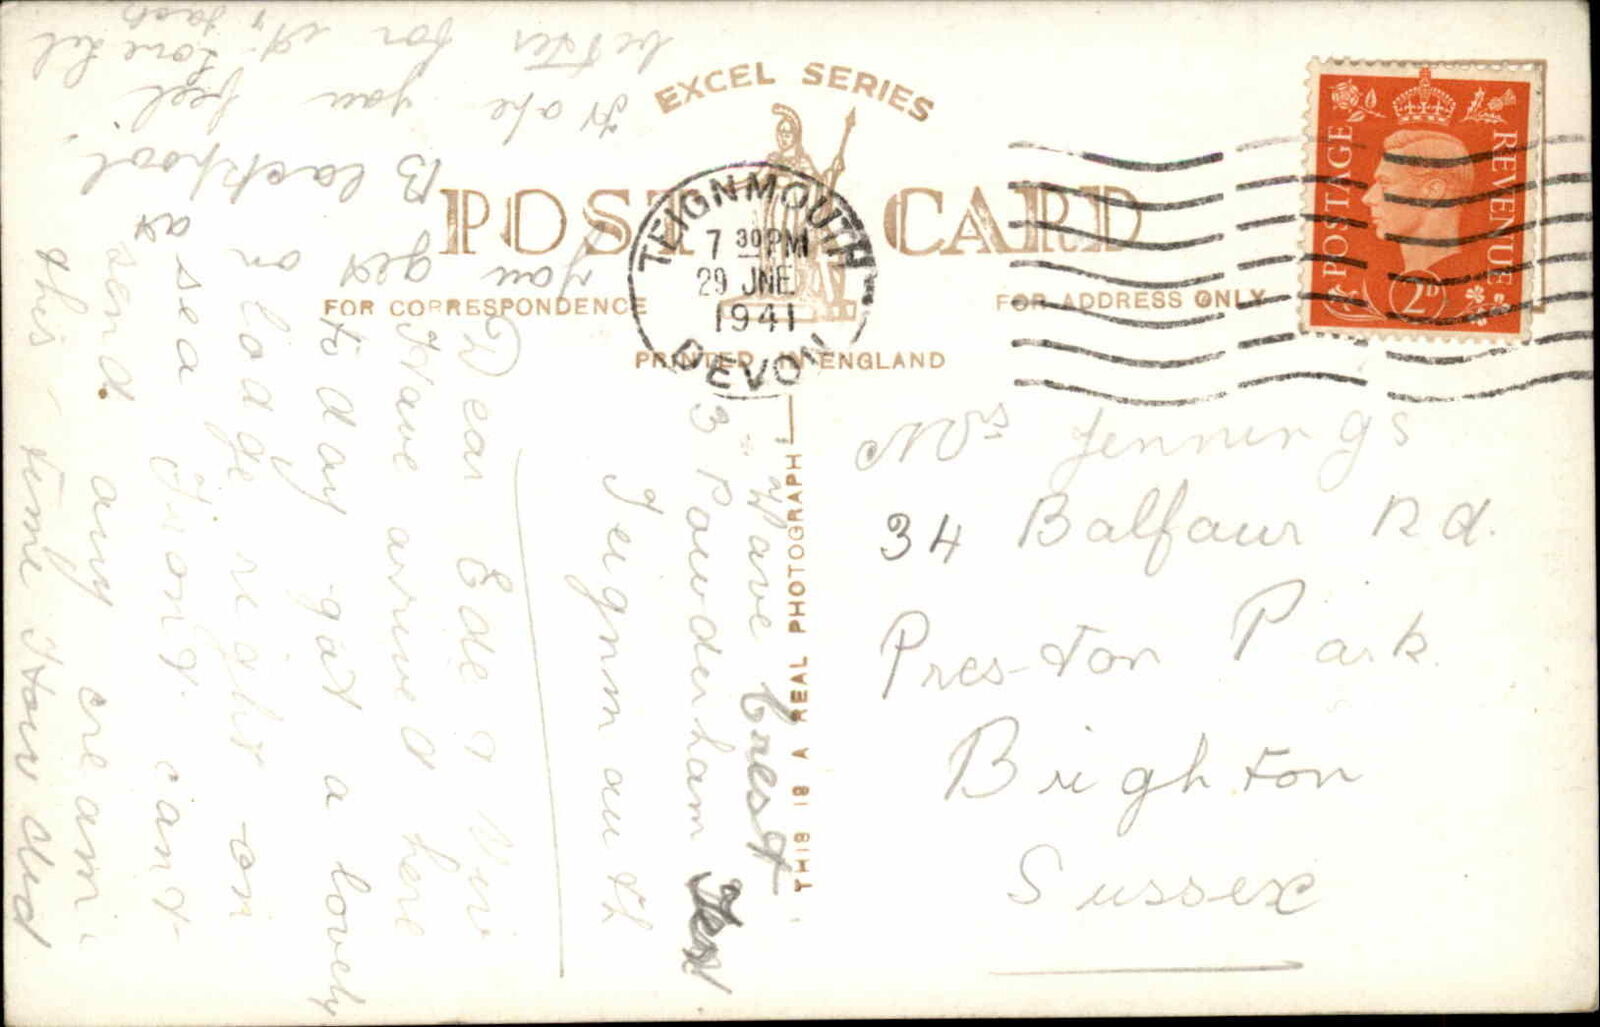 EXCEL SERIES
POST CARD
FOR CORRESPONDENCE
FOR ADDRESS ONLY
PRINTED IN ENGLAND
THIS IS A REAL PHOTOGRAPH
TEIGNMOUTH
7 30 PM
29 JNE
1941
DEVON
POSTAGE
REVENUE
2D
Mrs Jennings
34 Balfaur Rd.
Preston Park
Brighton
Sussex
"Wave Crest"
3 Pawderham
Teignmauth
Dear Ede & Viv
Have arrived here
to day gat a lovely
lodge right on
sea front cant
send any cream
this time How did
you get on at
Blackpool.
Hope you feel
better for it,
Love Lil
Jack